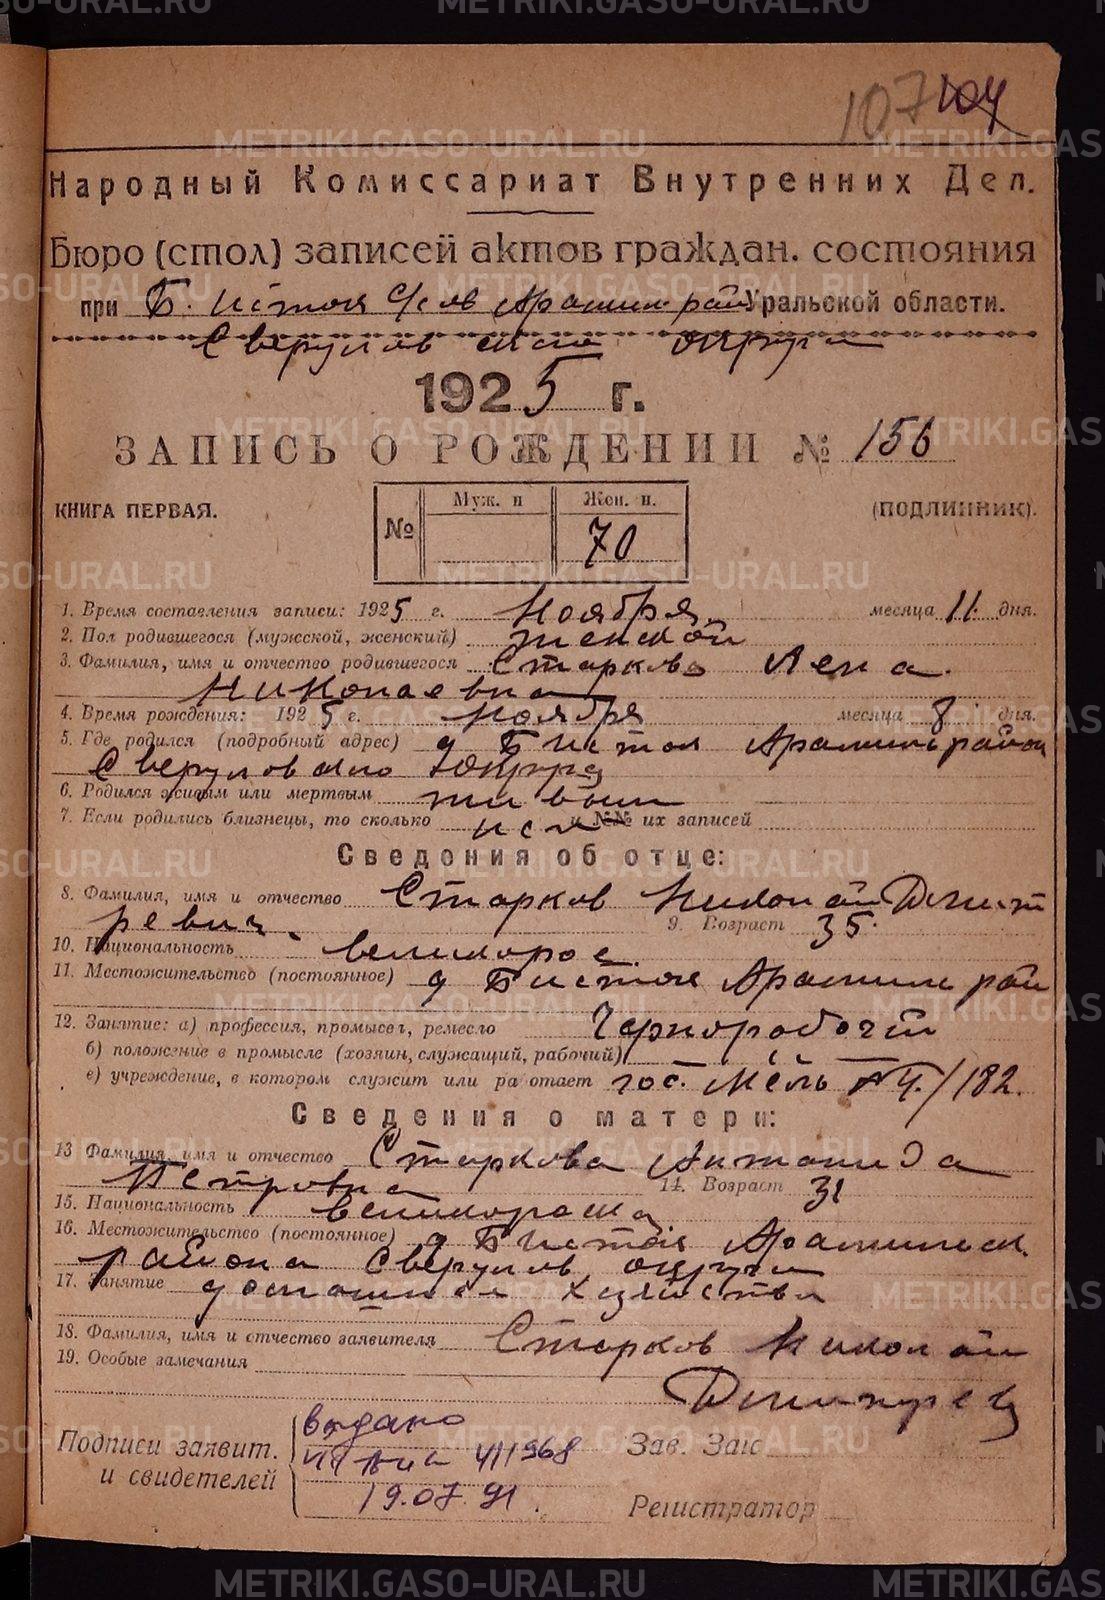 107 104
Народный Комиссариат Внутренних Дел.
Бюро (стол) записей актов граждан. состояния
при Б. Исток С/сов Арамил рай Уральской области.
Свердловского округа
1925 г.
ЗАПИСЬ О РОЖДЕНИИ № 156
КНИГА ПЕРВАЯ. № Муж. п Жен. п. 70 (ПОДЛИННИК).
1. Время составления записи: 1925 г. Ноября месяца 11 дня.
2. Пол родившегося (мужской, женский) женской
3. Фамилия, имя и отчество родившегося Старкова Лена
Николаевна
4. Время рождения: 1925 г. Ноября месяца 8 дня.
5. Где родился (подробный адрес) д Б Исток Арамильрайон
Свердловского округа
6. Родился живым или мертвым живым
7. Если родились близнецы, то сколько и №№ их записей
Сведения об отце:
8. Фамилия, имя и отчество Старков Николай Дмит
ревич. 9. Возраст 35.
10. Национальность великорос.
11. Местожительство (постоянное) д Б Исток Арамиль рай
12. Занятие: а) профессия, промысел, ремесло Чернорабочий
б) положение в промысле (хозяин, служащий, рабочий)
в) учреждение, в котором служит или работает гос. Мель № 4/182.
Сведения о матери:
13 Фамилия, имя и отчество Старкова Антонида
Петровна 14. Возраст 31
15. Национальность великоросска
16. Местожительство (постоянное) д Б Исток Арамильск.
района Свердлов. округа
17. Занятие домашнее хозяйство
18. Фамилия, имя и отчество заявителя Старков Николай
19. Особые замечания
Дмитрев
Подписи заявит. и свидетелей
выдано
411968
19.07.91.
Зав. Загс
Регистратор
METRIKI.GASO-URAL.RU